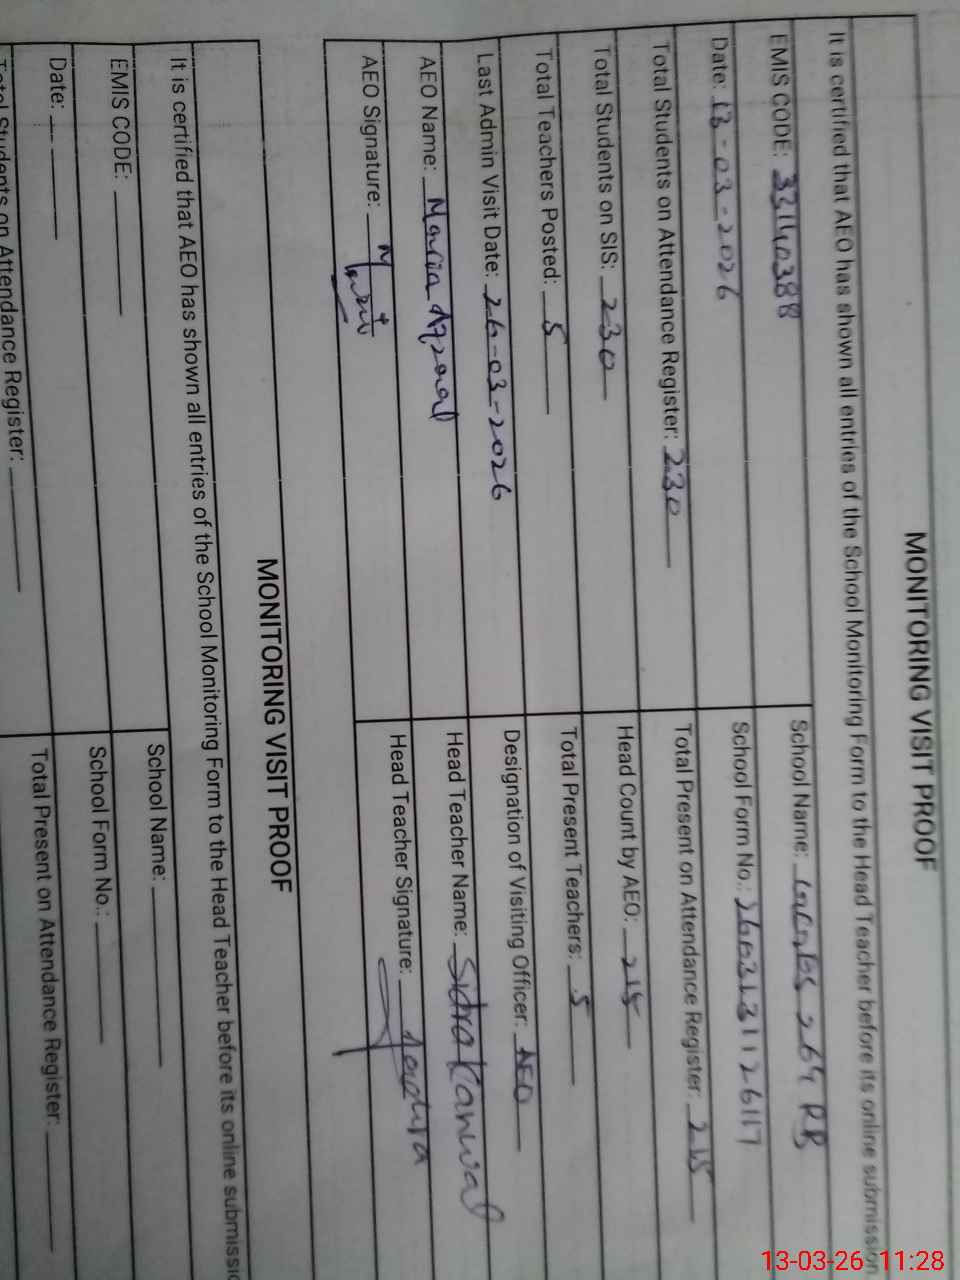 MONITORING VISIT PROOF
It is certified that AEO has shown all entries of the School Monitoring Form to the Head Teacher before its online submission
EMIS CODE: 33140388
School Name: 264 RB
Date: 13-03-2026
School Form No.: 2603131126117
Total Students on Attendance Register: 230
Total Present on Attendance Register: 215
Total Students on SIS: 230
Head Count by AEO: 215
Total Teachers Posted: 5
Total Present Teachers: 5
Last Admin Visit Date: 26-03-2026
Designation of Visiting Officer: AEO
AEO Name: Maria Afzaal
Head Teacher Name: Sidra Kanwal
AEO Signature:
Head Teacher Signature:
MONITORING VISIT PROOF
It is certified that AEO has shown all entries of the School Monitoring Form to the Head Teacher before its online submissio
EMIS CODE:
School Name:
Date:
School Form No.:
Total Students on Attendance Register:
Total Present on Attendance Register:
13-03-26 11:28